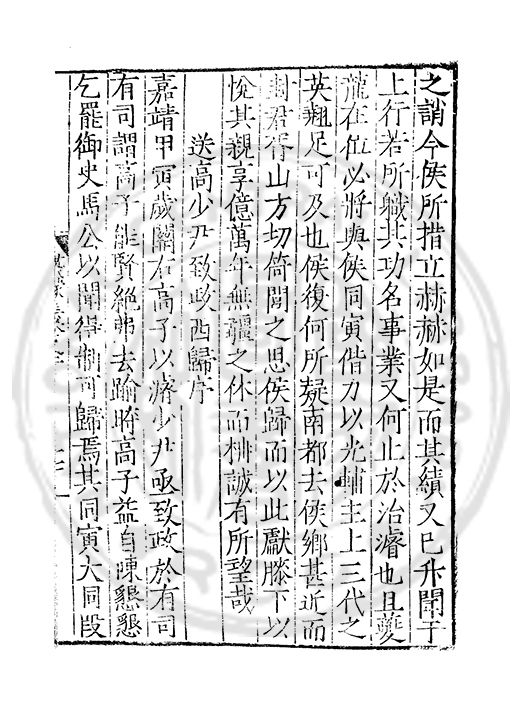 之誚今侯所措立赫赫如是而其績又已升聞于
上行若所職其功名事業又何止於治濬也且夔
龍在位必將與侯同寅偕力以光輔主上三代之
英軼足可及也侯復何所疑南都去侯鄉甚近而
封君胥山方切倚閭之思侯歸而以此獻膝下以
悅其親享億萬年無疆之休而栟誠有所望哉
送高少尹致政西歸序
嘉靖甲寅歲關右高子以濬少尹亟致政於有司
有司謂高子能賢絕弗去踰時高子益自陳懇懇
乞罷御史馬公以聞得制可歸焉其同寅大同段